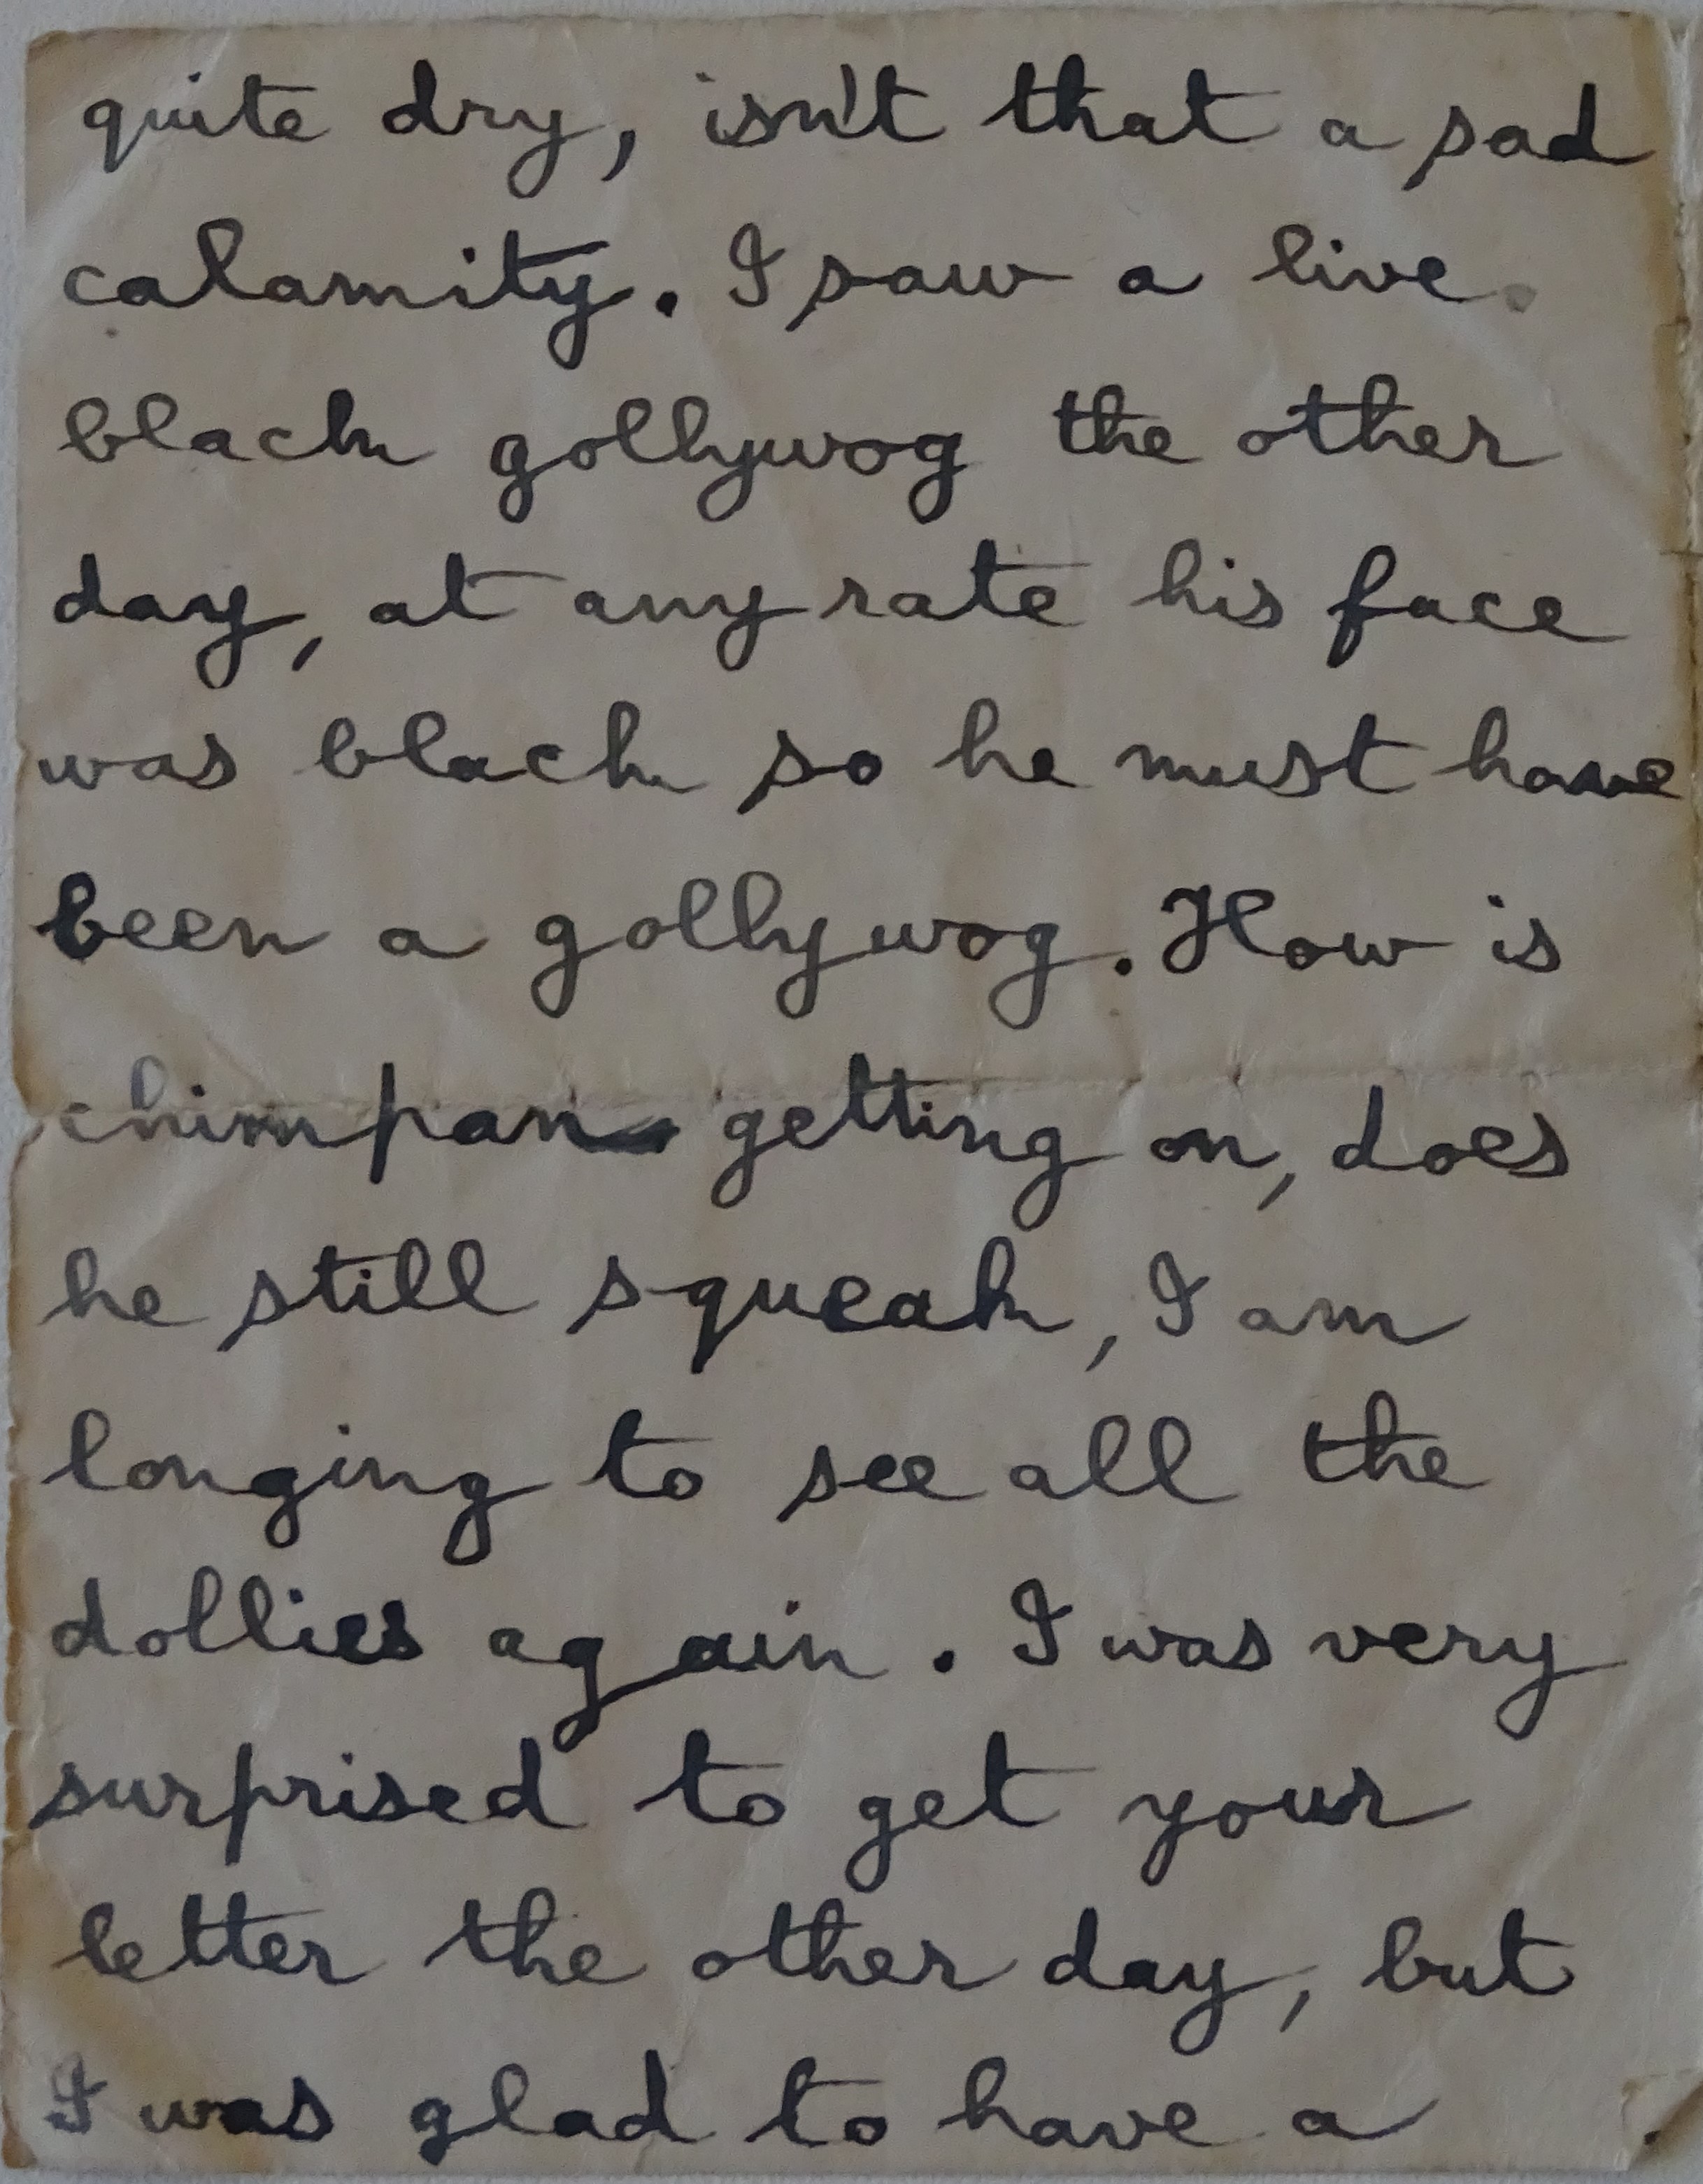 quite dry, isn't that a sad
calamity. I saw a live
black gollywog the other
day, at any rate his face
was black so he must have
been a gollywog. How is
chimpan getting on, does
he still squeak, I am
longing to see all the
dollies again. I was very
surprised to get your
letter the other day, but
I was glad to have a